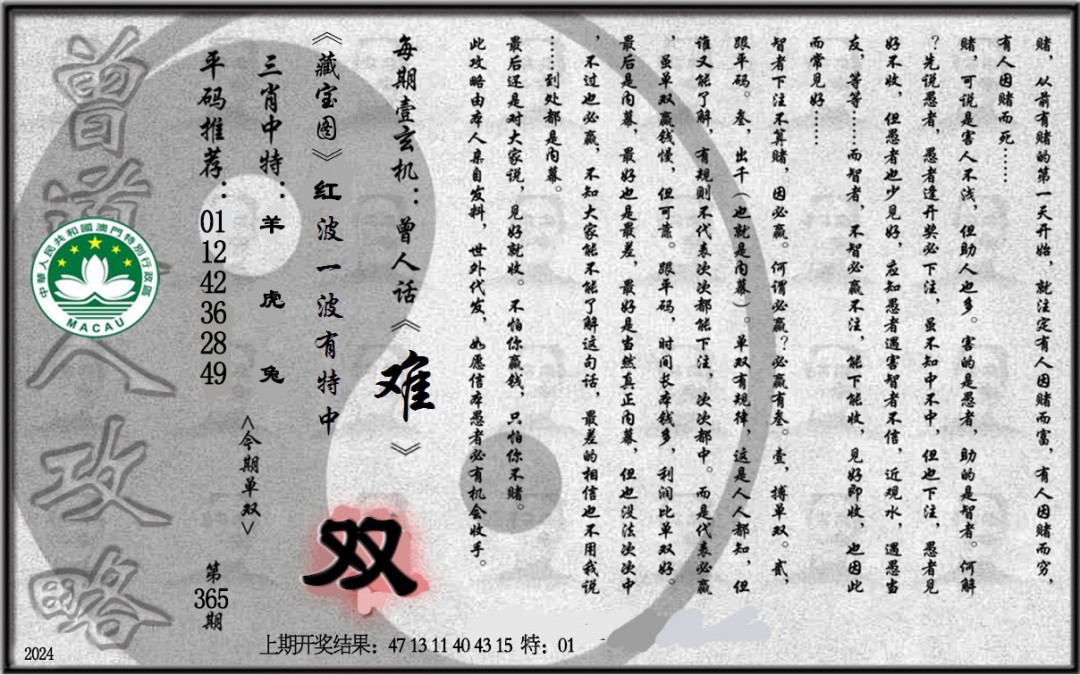 赌，从前有赌的第一天开始，就注定有人因赌而富，有人因赌而穷，
有人因赌而死……
赌，可说是害人不浅，但助人也多。害的是愚者，助的是智者。何解
？先说愚者，愚者逢开奖必下注，虽不知中不中，但也下注，愚者见
好不收，但愚者也少见好，应知愚者遇害智者不信，近观水，遇愚当
友，等等……而智者，不智必赢不注，能下能收，见好即收，也因此
而常见好……
智者下注不算赌，因必赢。何谓必赢？必赢有叁。壹，搏单双。贰，
跟平码。叁，出千（也就是内幕）。单双有规律，这是人人都知，但
谁又能了解，有规则不代表次次都能下注，次次都中。而是代表必赢
，虽单双赢钱慢，但可靠。跟平码，时间长本钱多，利润比单双好。
最后是内幕，最好也是最差，最好是当然真正内幕，但也没法次次中
，不过也必赢，不知大家能不能了解这句话，最差的相信也不用我说
……到处都是内幕。
最后还是对大家说，见好就收。不怕你赢钱，只怕你不赌。
此攻略由本人亲自发料，世外代发，如愿信本愚者必有机会收手。
每期壹玄机：曾人话《难》
《藏宝图》红波一波有特中
三肖中特：羊 虎 兔
平码推荐：01 12 42 36 28 49
<今期单双>
双
第365期
曾道人攻略
中華人民共和國澳門特別行政區
MACAU
上期开奖结果：47 13 11 40 43 15 特：01
2024